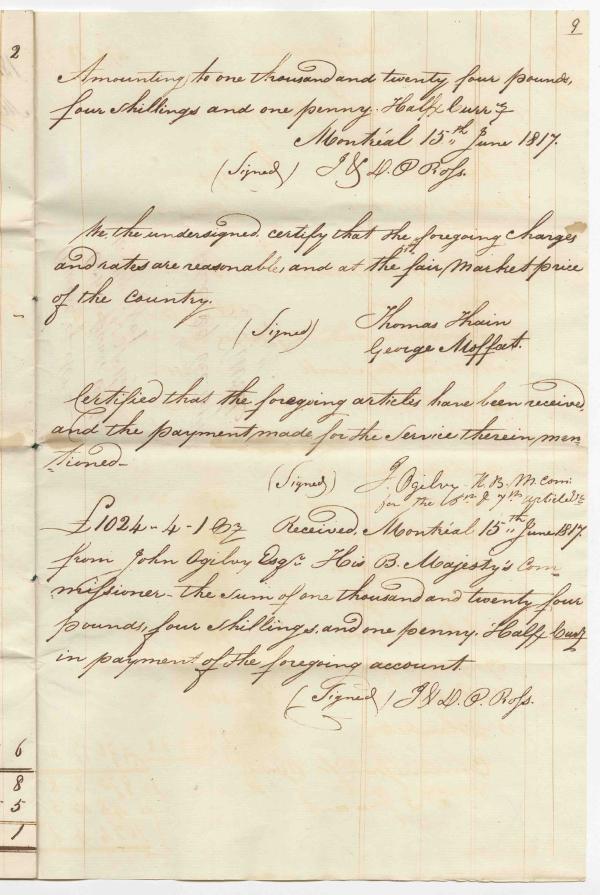 9
2
Amounting to one thousand and twenty four pounds,
four shillings and one penny Half Curr.y
Montréal 15th June 1817.
(Signed) J & D. P Ross.
We the undersigned certify that the foregoing charges
and rates are reasonable and at the fair Market price
of the Country.
(Signed) Thomas Thain
George Moffat.
Certified that the foregoing articles have been received,
and the payment made for the Service therein men-
-tioned-
(Signed) J. Ogilvy H. B. M. Com:
for the 6th & 7th articles &c
£1024-4-1 Received, Montréal 15th June 1817.
from John Ogilvy Esqr. His B. Majesty's Com
missioner- the sum of one thousand and twenty four
pounds, four shillings, and one penny. Half Curr.y
in payment of the foregoing account.
(Signed) J & D. P. Ross.
6
8
5
1